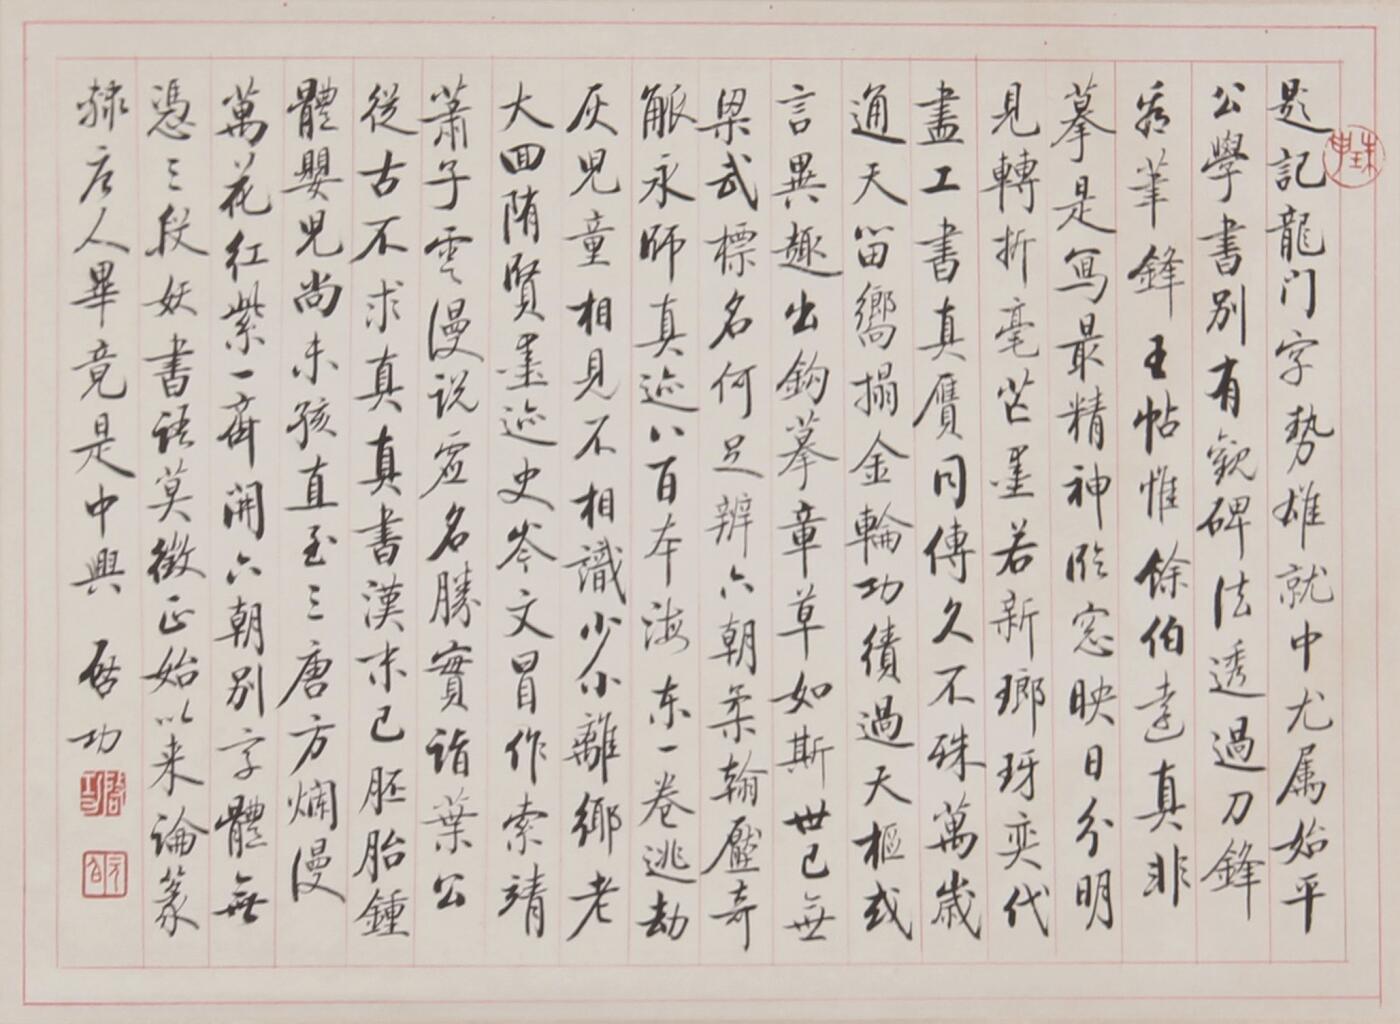 題記龍门字勢雄就中尤属始平
公學書別有觀碑法透過刀鋒
看筆鋒王帖惟餘伯遠真非
摹是寫最精神臨窓映日分明
見轉折毫芒墨若新瑯玡奕代
盡工書真贗同傳久不殊萬歲
通天留嚮搨金輪功績過天樞或
言異趣出鈎摹章草如斯世已無
梁武標名何足辨六朝柔翰壓奇
觚永師真迹八百本海東一卷逃劫
灰兒童相見不相識少小離鄉老
大回隋賢墨迹史岑文冒作索靖
蕭子雲漫說虚名勝實詣葉公
從古不求真真書漢末已胚胎鍾
體嬰兒尚未孩直至三唐方爛漫
萬花紅紫一齊開六朝別字體無
憑三段妖書語莫徵正始以来論篆
隸唐人畢竟是中興 啓功
珠申
啓功
元白